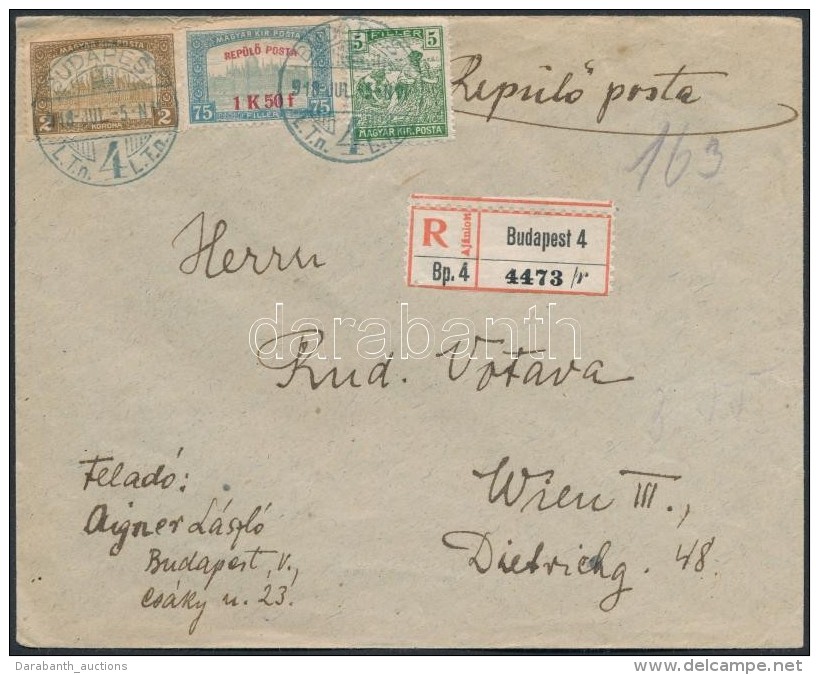 MAGYAR KIR. POSTA
2 KORONA 2
MAGYAR KIR. POSTA
REPÜLŐ POSTA
1 K 50 f
75 FILLER 75
5 FILLER 5
MAGYAR KIR. POSTA
BUDAPEST
918-JUL.-5-N
L.T.n. 4 L.T.n.
918-JUL
4
Repülő posta
163
R Ajánlott Budapest 4
Bp. 4 4473 /r
Herrn
darabanth
Rud. Votava
Feladó:
Wien III.,
Aigner László
Dietrichg. 48.
Budapest, V.,
Csáky u. 23.
Darabanth_auctions
delcampe.net